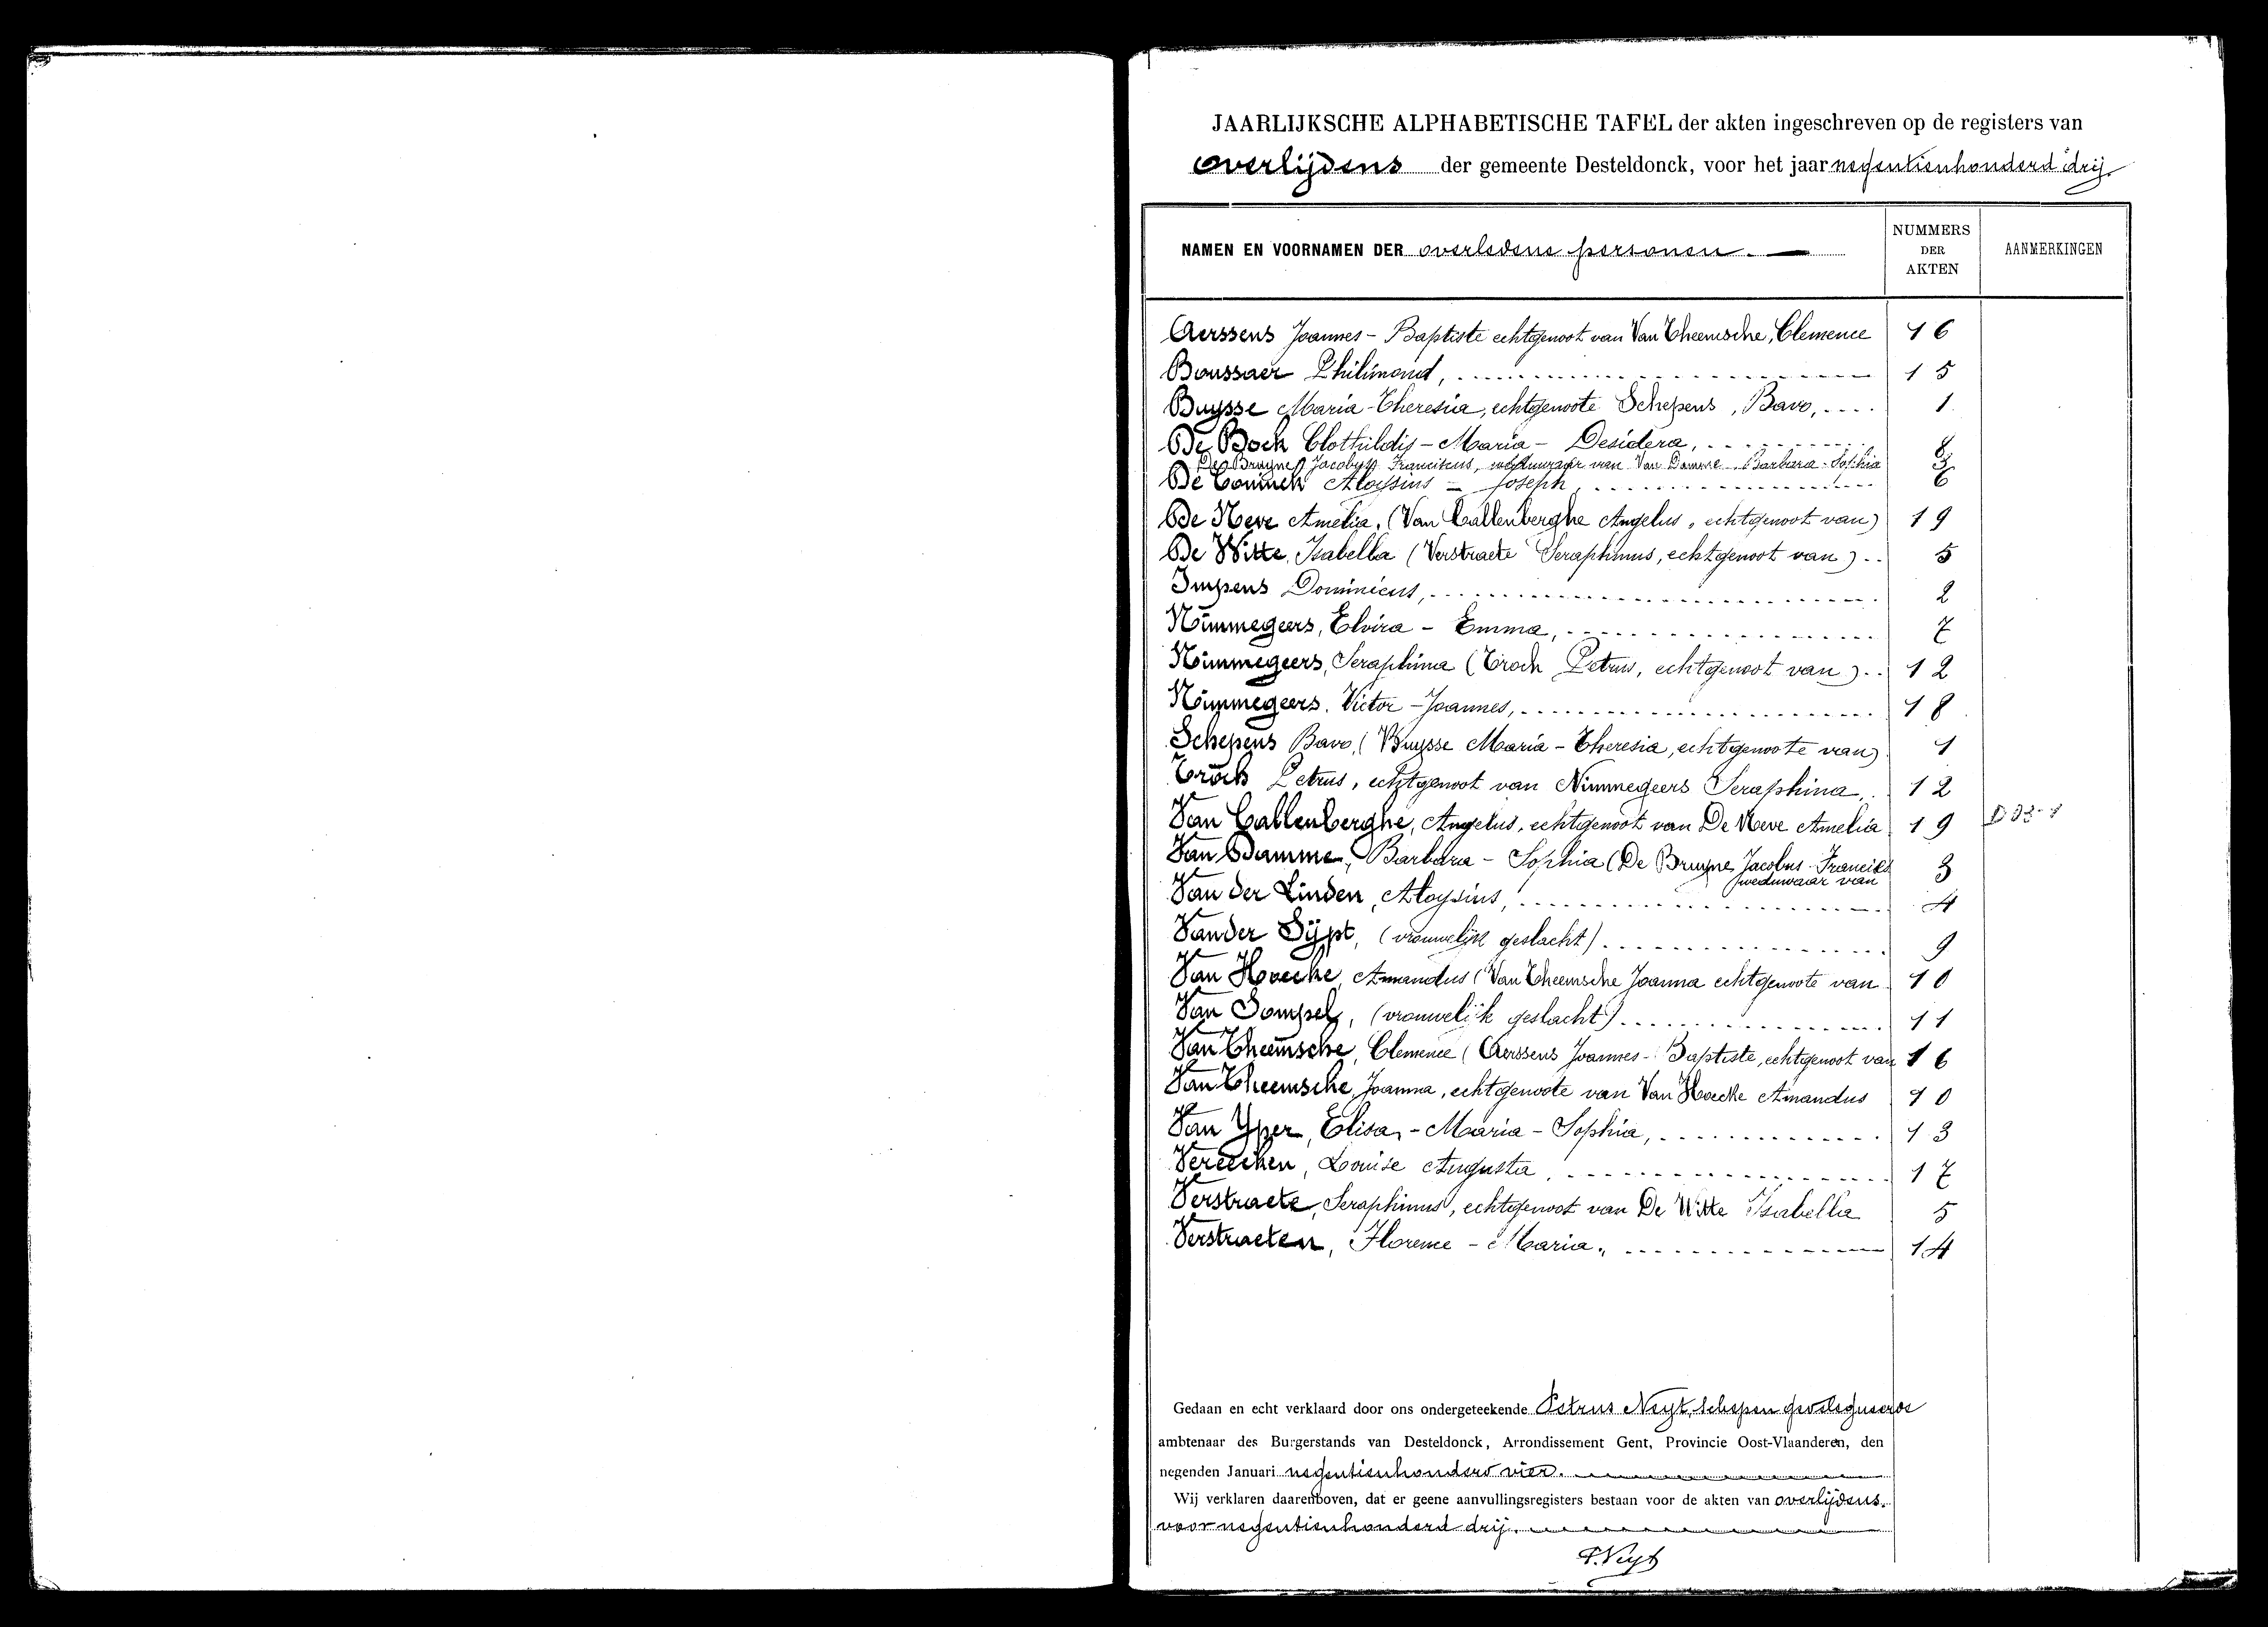 JAARLIJKSCHE ALPHABETISCHE TAFEL der akten ingeschreven op de registers van
overlijdens der gemeente Desteldonck, voor het jaar negentienhonderd drij.
NAMEN EN VOORNAMEN DER overledene personen. NUMMERS DER AKTEN AANMERKINGEN
Aerssens Joannes - Baptiste echtgenoot van Van Theemsche, Clemence 16
Boussaer Philimond, 15
Buysse Maria-Theresia, echtgenoote Schepens, Bavo, 1
De Bock Clothildis - Maria - Desidera, 8
De Bruyne Jacobus Franciscus, weduwaar van Van Damme Barbara-Sophia 3
De Coninck Aloysius - Joseph, 6
De Neve Amelia, (Van Callenberghe Angelus, echtgenoot van) 19
De Witte, Isabella (Verstraete Seraphinus, echtgenoot van) 5
Impens Dominicus, 2
Nimmegeers, Elvira - Emma, 7
Nimmegeers, Seraphina (Troch Petrus, echtgenoot van) 12
Nimmegeers, Victor - Joannes, 18
Schepens Bavo, (Buysse Maria - Theresia, echtgenoote van) 1
Troch Petrus, echtgenoot van Nimmegeers Seraphina, 12
Van Callenberghe, Angelus, echtgenoot van De Neve Amelia 19
Van Damme, Barbara - Sophia (De Bruyne Jacobus-Franciscus 3
weduwaar van
Van der Linden, Aloysius, 4
Vander Sypt, (vrouwelijk geslacht) 9
Van Hoecke, Amandus (Van Theemsche Joanna echtgenoote van 10
Van Sompel, (vrouwelijk geslacht) 11
Van Theemsche, Clemence (Aerssens Joannes-Baptiste, echtgenoot van 16
Van Theemsche, Joanna, echtgenoote van Van Hoecke Amandus 10
Van Yper, Elisa, - Maria - Sophia, 13
Vereecken, Louise Augusta, 17
Verstraete, Seraphinus, echtgenoot van De Witte Isabella 5
Verstraeten, Florence - Maria, 14
Gedaan en echt verklaard door ons ondergeteekende Petrus Neyt, schepen
ambtenaar des Burgerstands van Desteldonck, Arrondissement Gent, Provincie Oost-Vlaanderen, den
negenden Januari negentienhonderd vier.
Wij verklaren daarenboven, dat er geene aanvullingsregisters bestaan voor de akten van overlijdens.
voor negentienhonderd drij.
P. Neyt